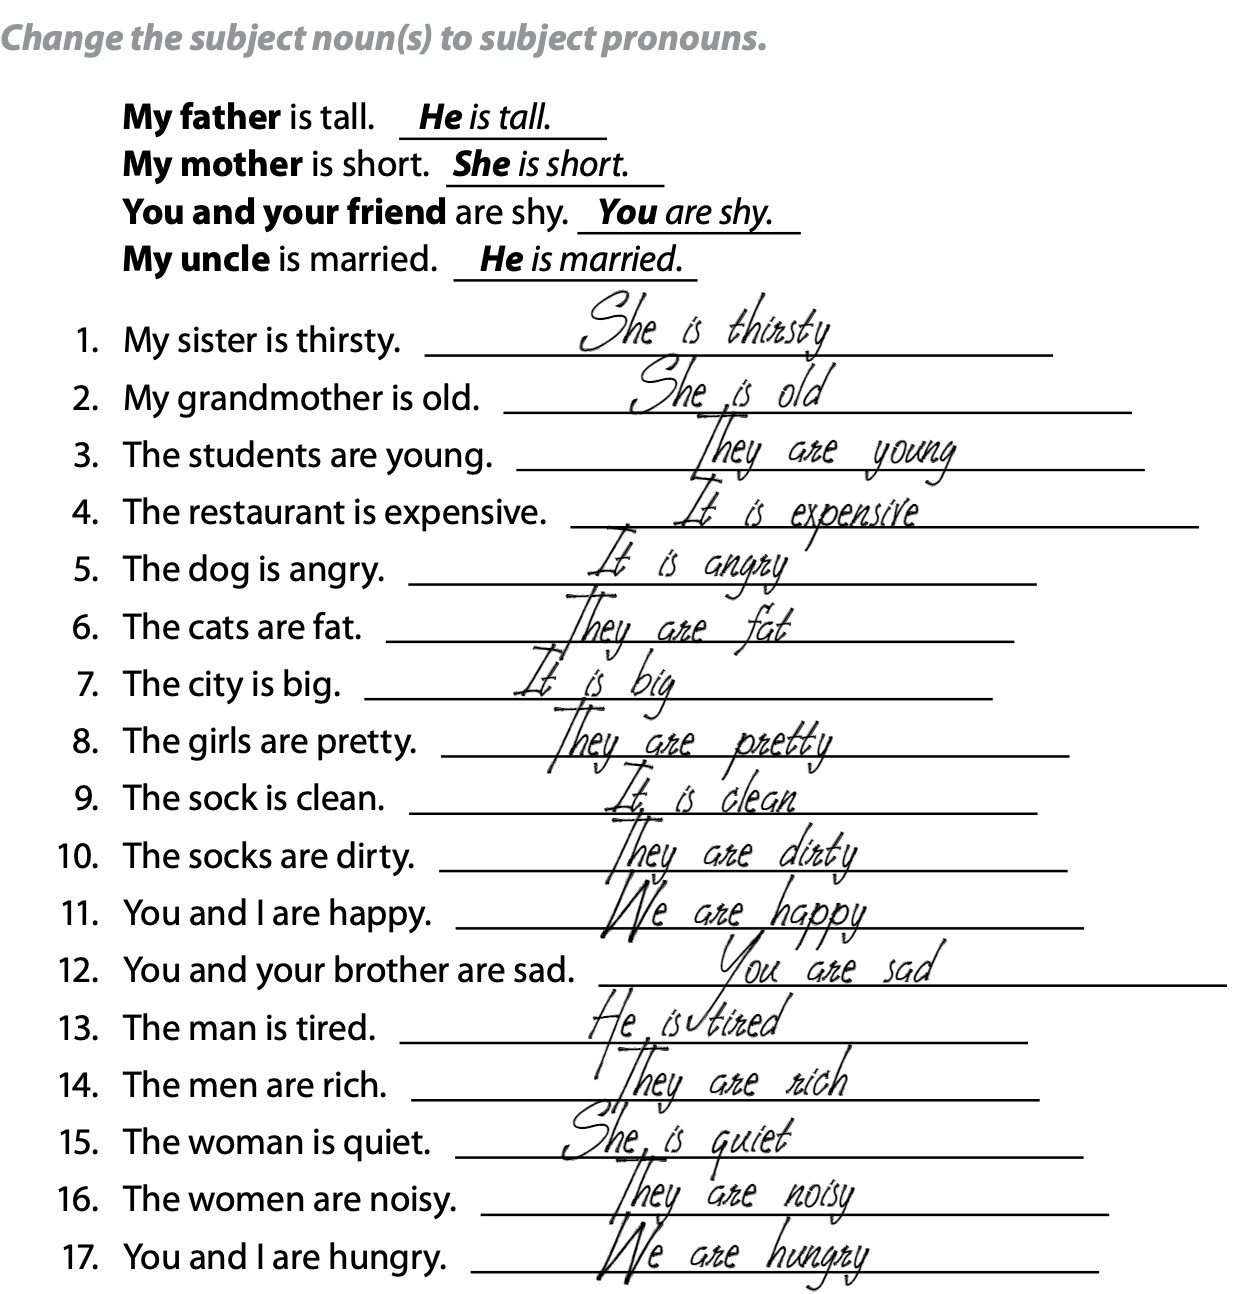 Change the subject noun(s) to subject pronouns.
My father is tall. He is tall.
My mother is short. She is short.
You and your friend are shy. You are shy.
My uncle is married. He is married.
1. My sister is thirsty. She is thirsty
2. My grandmother is old. She is old
3. The students are young. They are young
4. The restaurant is expensive. It is expensive
5. The dog is angry. It is angry
6. The cats are fat. They are fat
7. The city is big. It is big
8. The girls are pretty. They are pretty
9. The sock is clean. It is clean
10. The socks are dirty. They are dirty
11. You and I are happy. We are happy
12. You and your brother are sad. You are sad
13. The man is tired. He is tired
14. The men are rich. They are rich
15. The woman is quiet. She is quiet
16. The women are noisy. They are noisy
17. You and I are hungry. We are hungry